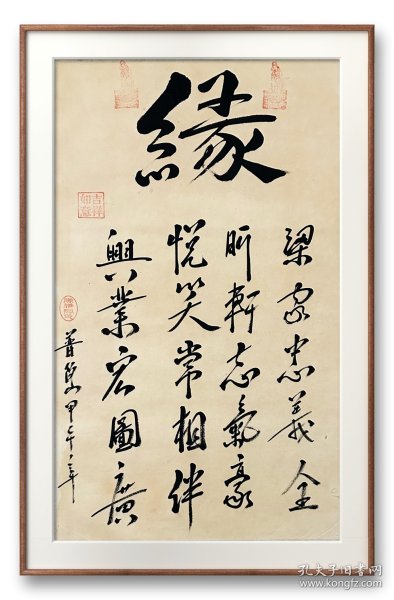 緣
梁家忠義全
昕軒志氣豪
悅笑常相伴
興業宏圖廣
甲午年
吉祥如意
孔夫子旧书网
www.kongfz.com